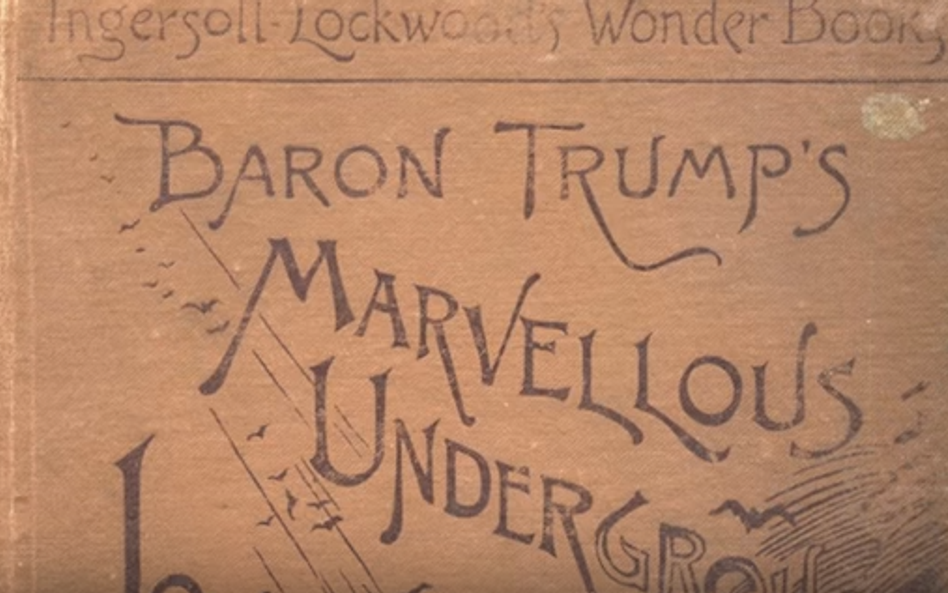 Ingersoll-Lockwood's Wonder Books
BARON TRUMP'S
MARVELLOUS
UNDERGROU